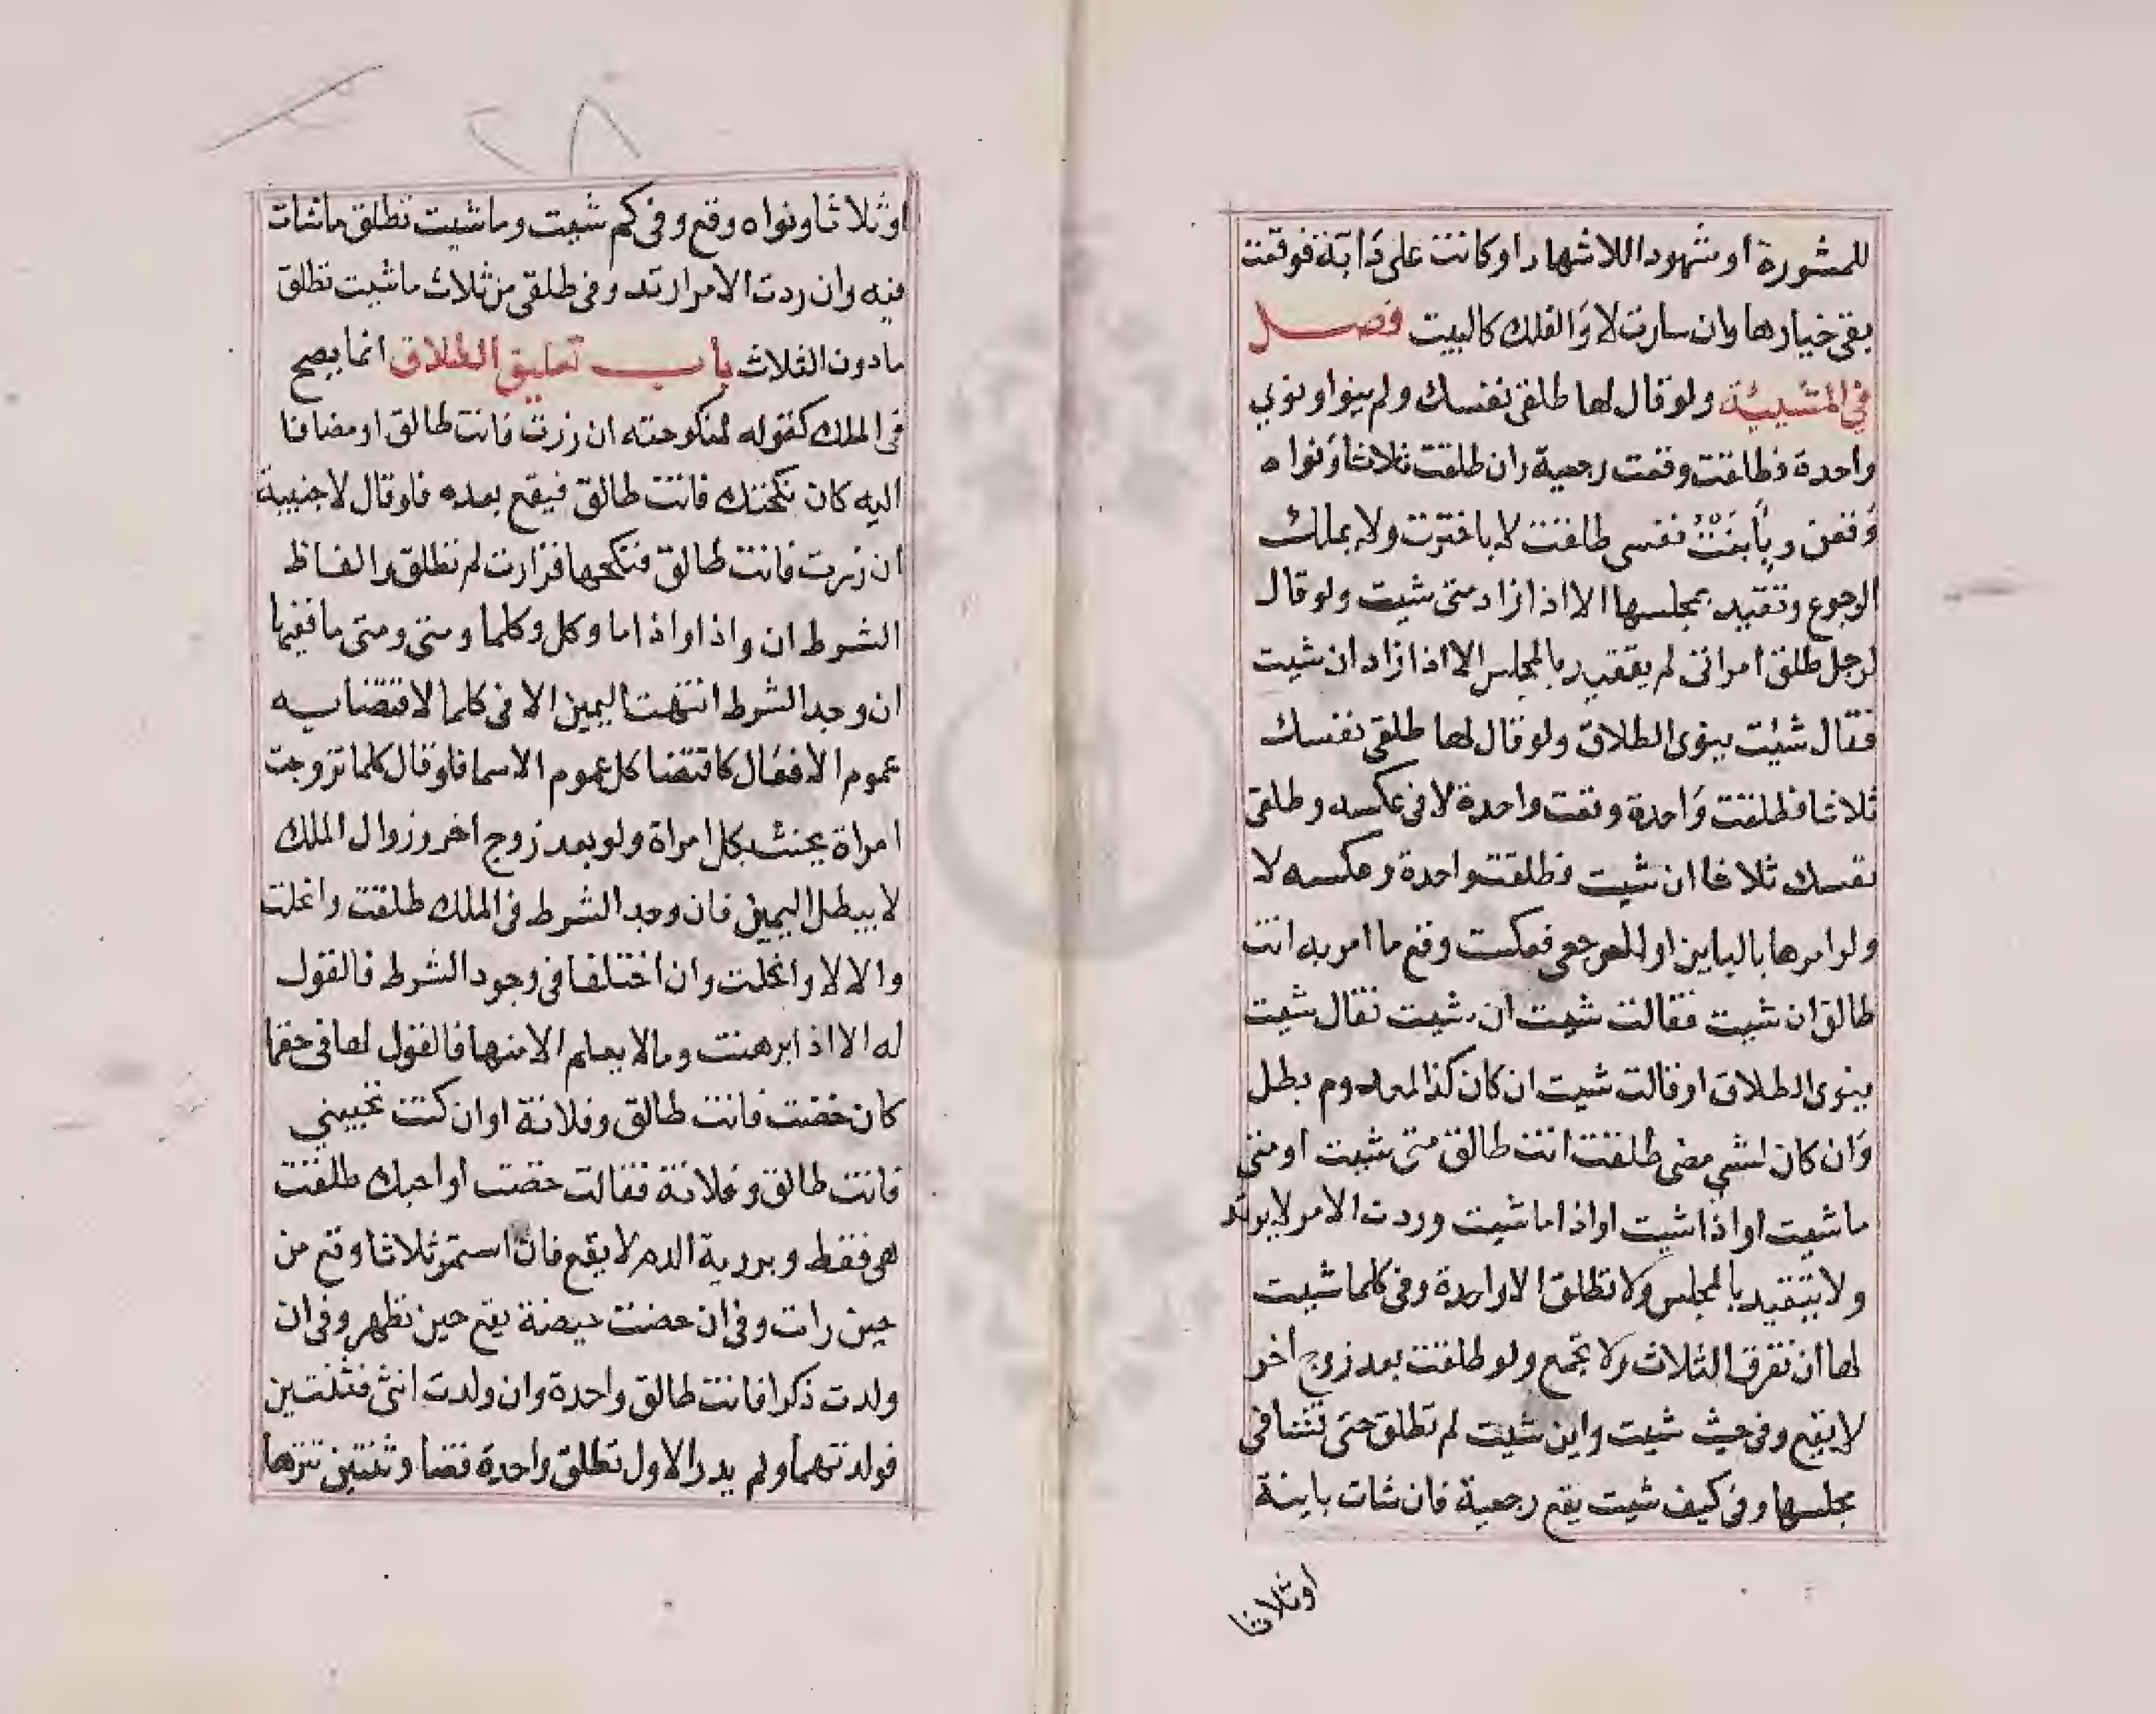 للمشورة او شهودا للاشهاد او كانت على دابة فوقفت
بقى خيارها وان سارت لا والفلك كالبيت فصل
في المشيئة ولو قال لها طلقى نفسك ولم ينو او نوي
واحدة فطلقت وقعت رجعية وان طلقت ثلاثا ونواه
وقعن وبابنت نفسى طلقت لا باخترت ولا يملك
الرجوع وتقيد بمجلسها الا اذا زاد متى شيت ولو قال
لرجل طلق امراتى لم يتقيد بالمجلس الا اذا زاد ان شيت
فقال شئت ينوى الطلاق ولو قال لها طلقى نفسك
ثلاثا فطلقت واحدة وقعت واحدة لا فى عكسه وطلقى
نفسك ثلاثا ان شيت فطلقت واحدة وعكسه لا
ولو امرها بالباين او الرجعى فعكست وقع ما امر به انت
طالق ان شيت فقالت شيت ان شيت فقال شيت
ينوى الطلاق او قالت شيت ان كان كذا لمعدوم بطل
وان كان لشي مضى طلقت انت طالق متى شيت او متى
ما شيت او اذا شيت او اذا ما شيت وردت الامر لا يرتد
ولا يتقيد بالمجلس ولا تطلق الا واحدة وفى كلما شيت
لها ان تفرق الثلاث ولا تجمع ولو طلقت بعد زوج اخر
لا يقع وفى حيث شيت واين شيت لم تطلق حتى تشا فى
مجلسها وفى كيف شيت يقع رجعية فان شات باينة
او ثلاثا
او ثلاثا ونواه وقع وفى كم شيت وما شيت تطلق ما شات
فيه وان ردت الامر ارتد وفى طلقى من ثلاث ما شيت تطلق
ما دون الثلاث باب تعليق الطلاق انما يصح
فى الملك كقوله لمنكوحته ان زرت فانت طالق او مضافا
اليه كان نكحتك فانت طالق فيقع بعده فلو قال لاجنبية
ان زرت فانت طالق فنكحها فزارت لم تطلق والفاظ
الشرط ان واذا واذاما وكل وكلما ومتى ومتى ما ففيها
ان وجد الشرط انتهت اليمين الا فى كلما لاقتضايه
عموم الافعال كاقتضا كل عموم الاسما فلو قال كلما تزوجت
امراة يحنث بكل امراة ولو بعد زوج اخر وزوال الملك
لا يبطل اليمين فان وجد الشرط فى الملك طلقت وانحلت
والا لا وانحلت وان اختلفا فى وجود الشرط فالقول
له الا اذا برهنت وما لا يعلم الا منها فالقول لها فى حقها
كان حضت فانت طالق وفلانة او ان كنت تحبيني
فانت طالق وفلانة فقالت حضت او احبك طلقت
هى فقط وبروية الدم لا يقع فان استمر ثلاثا وقع من
حين رات وفى ان حضت حيضة يقع حين تطهر وفى ان
ولدت ذكرا فانت طالق واحدة وان ولدت انثى فثنتين
فولدتهما ولم يدر الاول تطلق واحدة قضا وثنتين تنزها